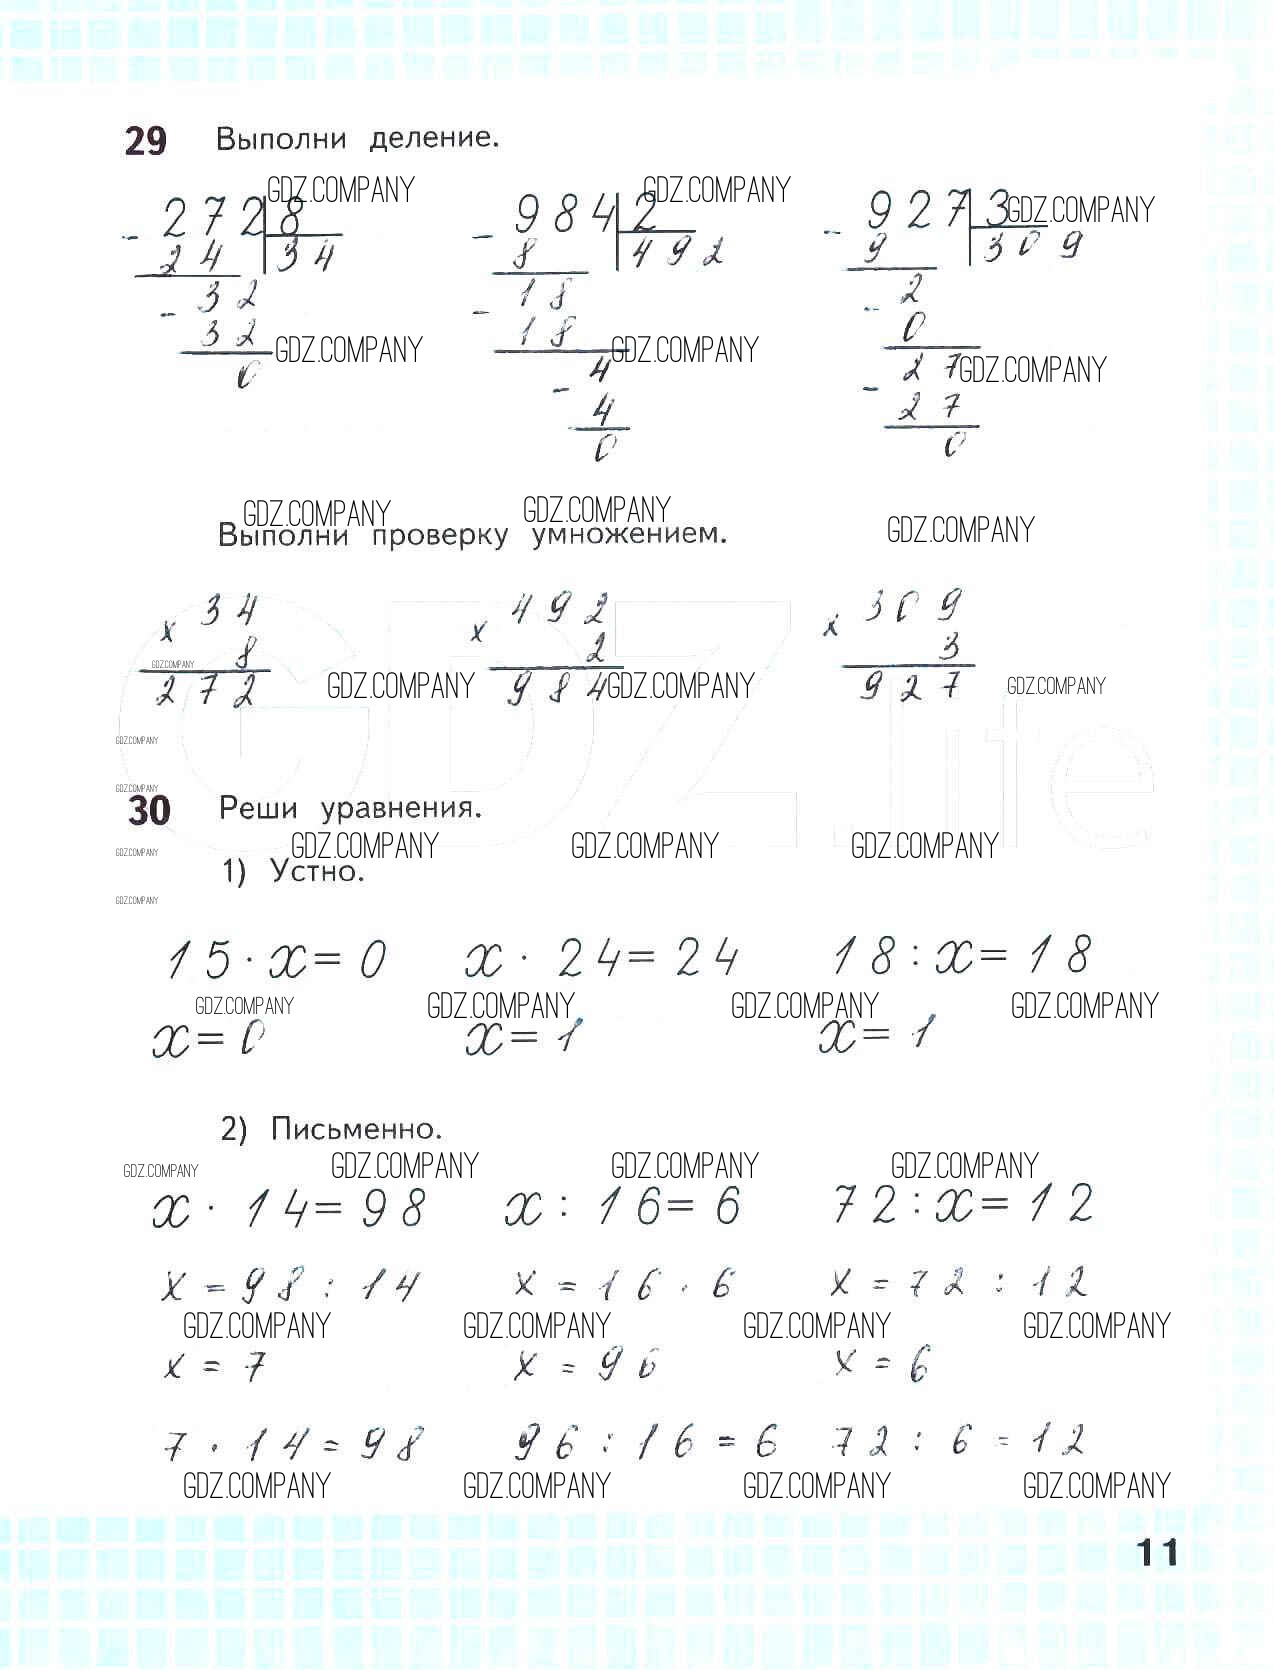 29 Выполни деление.
GDZ.COMPANY GDZ.COMPANY GDZ.COMPANY
- 272 8 - 984 2 - 927 3
24 34 8 492 9 309
- 32 - 18 - 2
32 18 0
GDZ.COMPANY GDZ.COMPANY GDZ.COMPANY
0 - 4 - 27
4 27
0 0
GDZ.COMPANY GDZ.COMPANY GDZ.COMPANY
Выполни проверку умножением.
34 492 309
x 8 x 2 x 3
GDZ.COMPANY
272 984 927
GDZ.COMPANY GDZ.COMPANY GDZ.COMPANY
GDZ.life
GDZ.COMPANY
GDZ.COMPANY
30 Реши уравнения.
GDZ.COMPANY GDZ.COMPANY GDZ.COMPANY GDZ.COMPANY
1) Устно.
GDZ.COMPANY
15 · x = 0 x · 24 = 24 18 : x = 18
GDZ.COMPANY GDZ.COMPANY GDZ.COMPANY GDZ.COMPANY
x = 0 x = 1 x = 1
2) Письменно.
GDZ.COMPANY GDZ.COMPANY GDZ.COMPANY GDZ.COMPANY
x · 14 = 98 x : 16 = 6 72 : x = 12
x = 98 : 14 x = 16 · 6 x = 72 : 12
GDZ.COMPANY GDZ.COMPANY GDZ.COMPANY GDZ.COMPANY
x = 7 x = 96 x = 6
7 · 14 = 98 96 : 16 = 6 72 : 6 = 12
GDZ.COMPANY GDZ.COMPANY GDZ.COMPANY GDZ.COMPANY
11